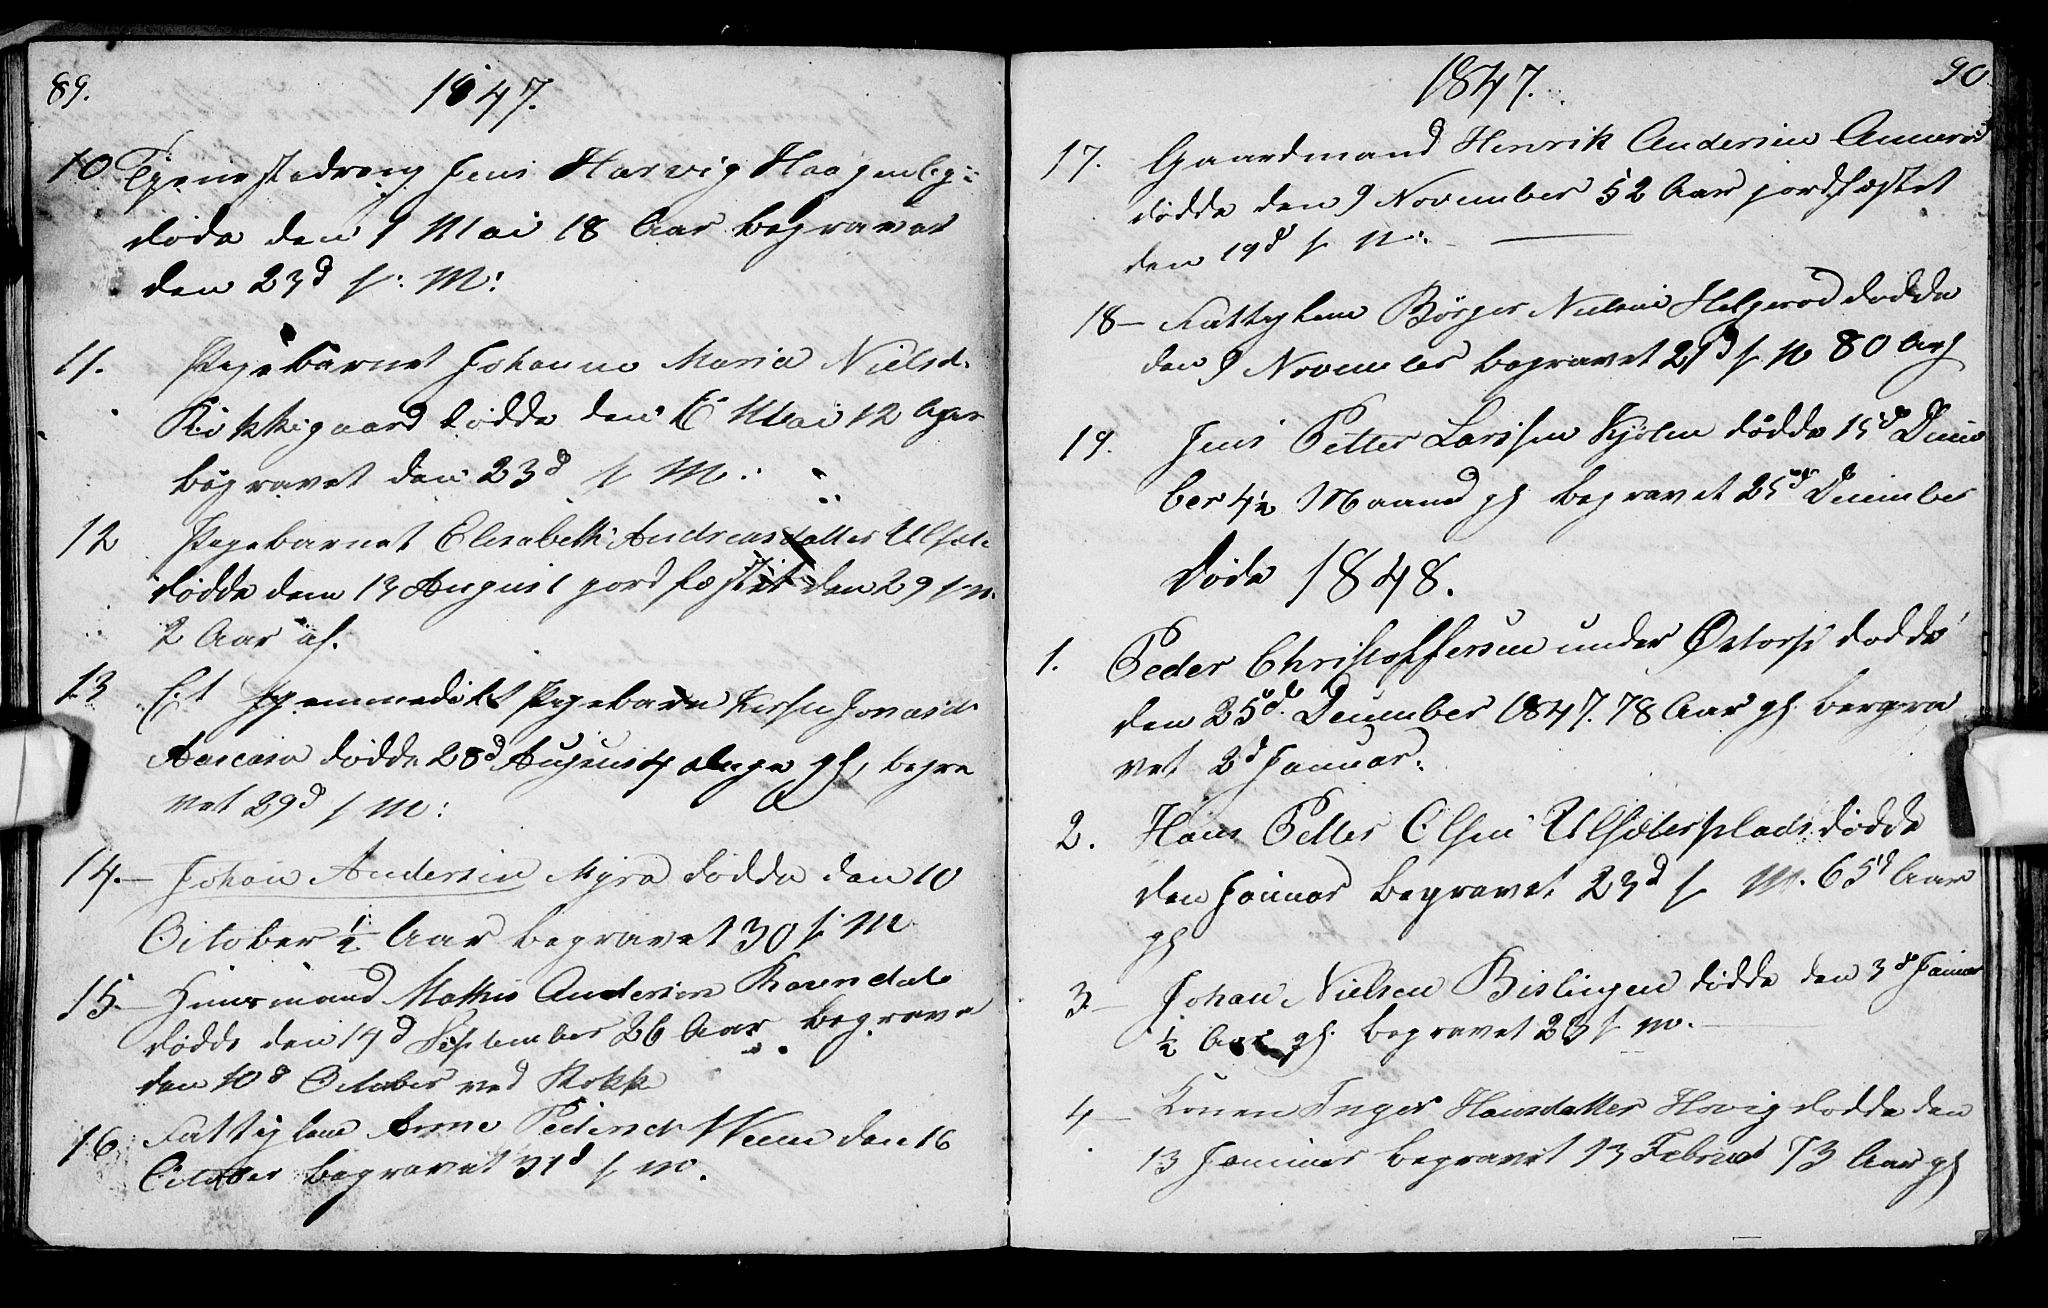 89.
1847.
10 Tjenestedreng Jens Harvig Haagensby
døde den 1 Mai 18 Aar begravet
den 23d s: M:
11. Pigebarnet Johanne Maria Nielsd.
Kirkkegaard dødde den 6 Mai 12 Aar
begravet den 23d s M:
12 Pigebarnet Elisabeth Andreasdatter Ulset
dødde den 13 August jordfæstet den 29 s m.
2 Aar af.
13 Et hjemmedøbt Pigebarn Kirsten Jonasd
dødde 28d August 4 Dage gl, begra
vet 29d s M:
14. – Johan Andersen Myra dødde den 10
October ½ Aar begravet 30 s M
15. – Huusmand Mathis Andersen Ravndal
dødde den 14d September 26 Aar begrave
den 10d October ved Rokke
16. Fattiglem Anne Pedersd Weem den 16
October begravet 31d s m.
90
1847.
17. Gaardmand Henrik Andersen Annerød
dødde den 9 November 52 Aar jordfæstet
den 19d s m:
18 – Fattiglem Börger Nielsen Helgerød dødde
den 9 November begravet 21d s m 80 Ar gl
19. Jens Petter Larssen Kjølen dødde 15d Decem
ber 4½ Maaned gl begravet 25d December
Døde 1848.
1. Peder Christoffersen under Østorp dødde
den 25d. December 1847. 78 Aar gl. bergra
vet 2d Januar.
2. Hans Petter Olsen Ulsæterplads dødde
den Januar begravet 23d s M. 65 Aar
gl
3 – Johan Nielsen Bislingen dødde den 3d Januar
½ Aar gl. begravet 23 s m.
4 – Konen Inger Hansdatter Hovig dødde den
13 Januar begravet 13 Februar 73 Aar gl